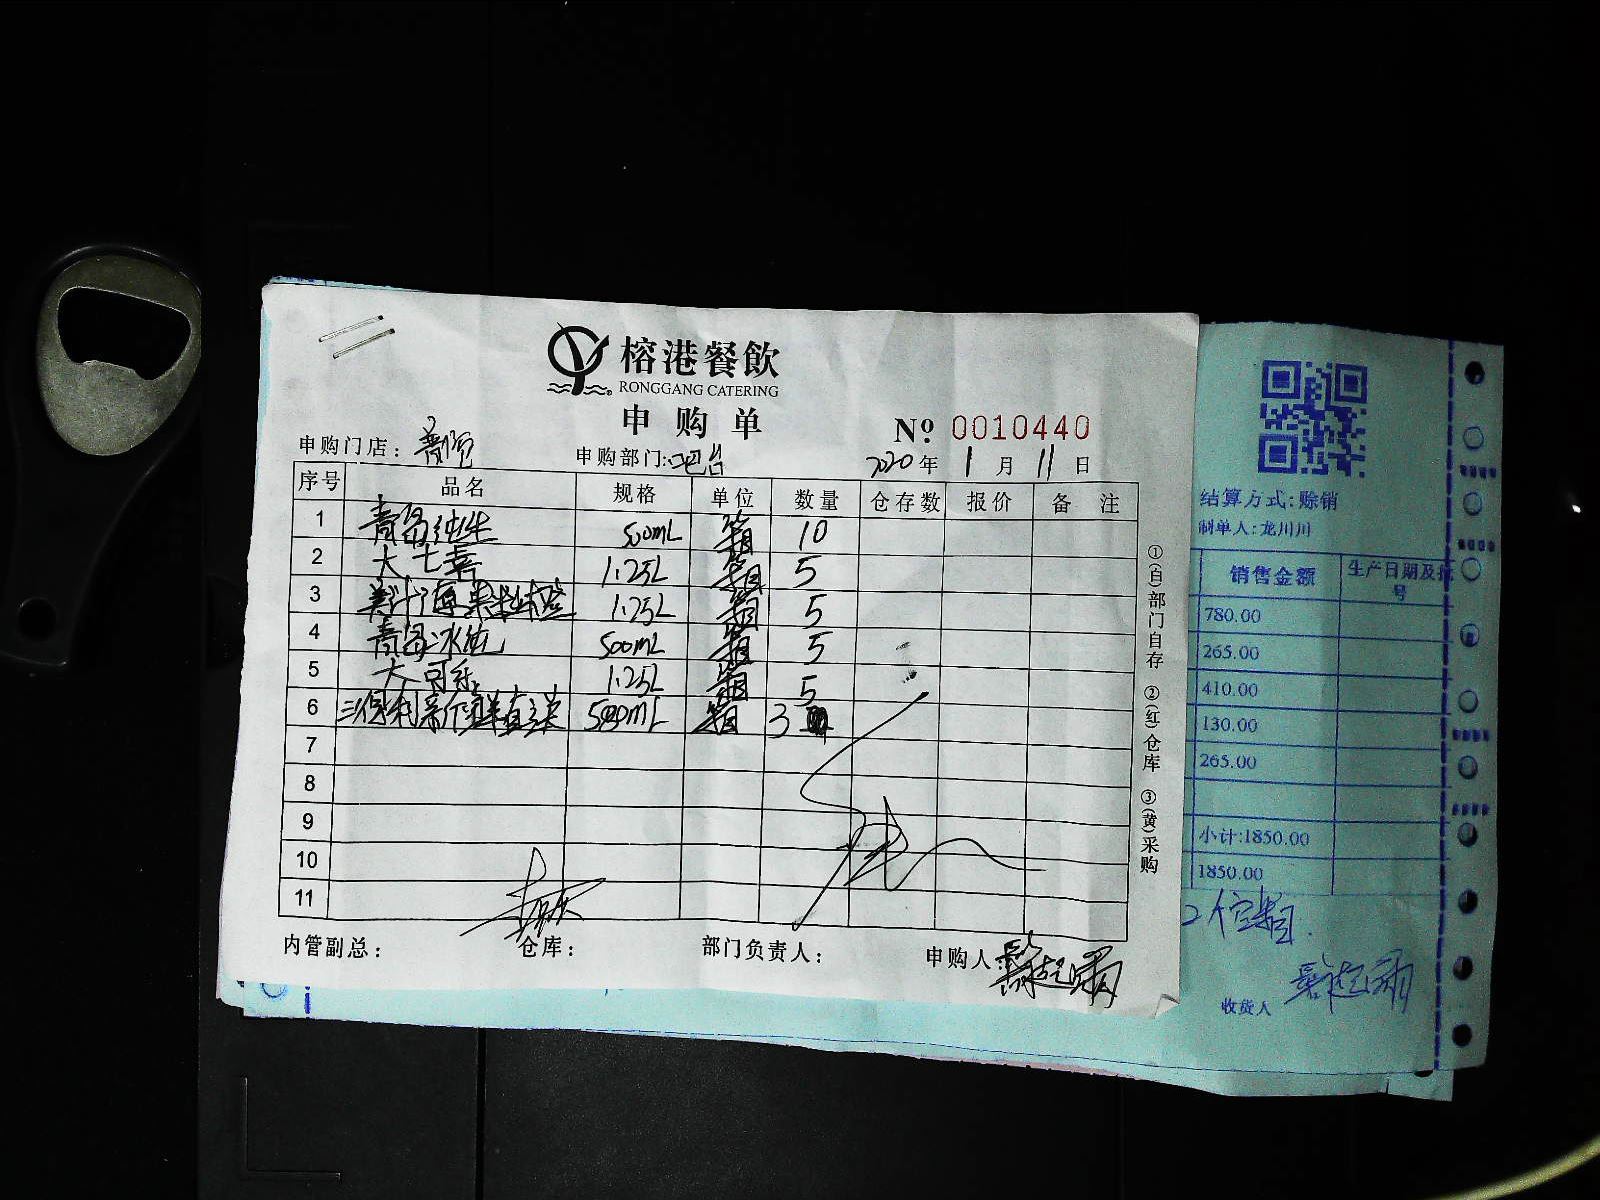 榕港餐飲
RONGGANG CATERING
申购单
Nº 0010440
申购门店:
申购部门:吧台
2020年1月11日
序号 品名 规格 单位 数量 仓存数 报价 备注
1 青岛纯生 500mL 箱 10
2 大七喜 1.25L 箱 5
3 美汁源果粒橙 1.25L 箱 5
4 青岛冰纯 500mL 箱 5
5 大可乐 1.25L 箱 5
6 500mL 箱 3
7
8
9
10
11
内管副总: 仓库: 部门负责人: 申购人:
①(白)部门自存 ②(红)仓库 ③(黄)采购
结算方式:赊销
制单人:龙川川
销售金额 生产日期及批号
780.00
265.00
410.00
130.00
265.00
小计:1850.00
1850.00
2个空箱.
收货人